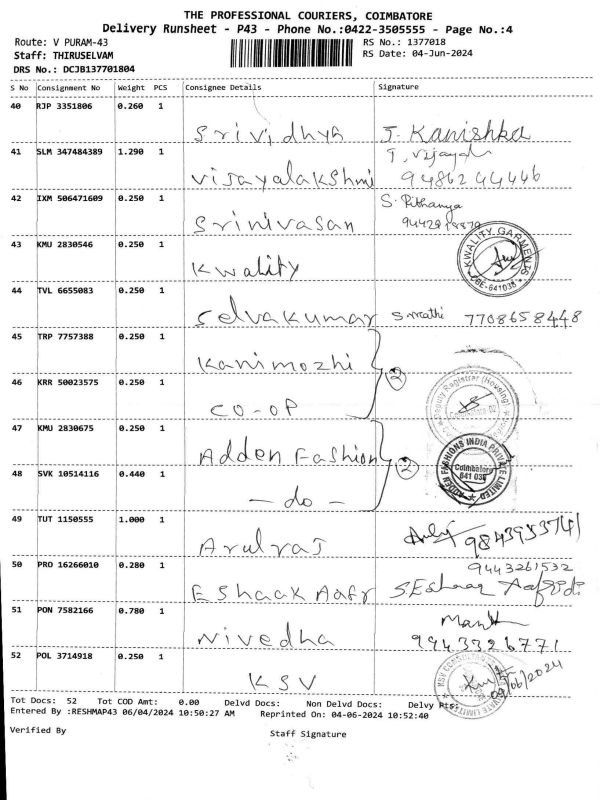 THE PROFESSIONAL COURIERS, COIMBATORE
Delivery Runsheet - P43 - Phone No.:0422-3505555 - Page No.:4
Route: V PURAM-43 RS No.: 1377018
Staff: THIRUSELVAM RS Date: 04-Jun-2024
DRS No.: DCJB137701804
S No Consignment No Weight PCS Consignee Details Signature
40 RJP 3351806 0.260 1
Srividhya J. Kanishka
41 SLM 347484389 1.290 1 T. Vijayal
Vijayalakshmi 9486244446
42 IXM 506471609 0.250 1 S. Rithanya
Srinivasan
43 KMU 2830546 0.250 1 KWALITY GARMENTS
Kwality CBE-641038
44 TVL 6655083 0.250 1
Selvakumar 7708658448
45 TRP 7757388 0.250 1
Kanimozhi
2
46 KRR 50023575 0.250 1 Deputy Registrar (Housing)
CO-OP
47 KMU 2830675 0.250 1
Adden Fashion ADDEN FASHIONS INDIA PRIVATE LIMITED
2 Coimbatore
48 SVK 10514116 0.440 1 641 038
- do -
49 TUT 1150555 1.000 1
Arulraj
50 PRO 16266010 0.280 1 9443261532
Eshaak Aafr S. Eshaaq
51 PON 7582166 0.780 1
Nivedha 9943326771
52 POL 3714918 0.250 1
KSV
Tot Docs: 52 Tot COD Amt: 0.00 Delvd Docs: Non Delvd Docs: Delvy Pts:
Entered By :RESHMAP43 06/04/2024 10:50:27 AM Reprinted On: 04-06-2024 10:52:40
Verified By Staff Signature